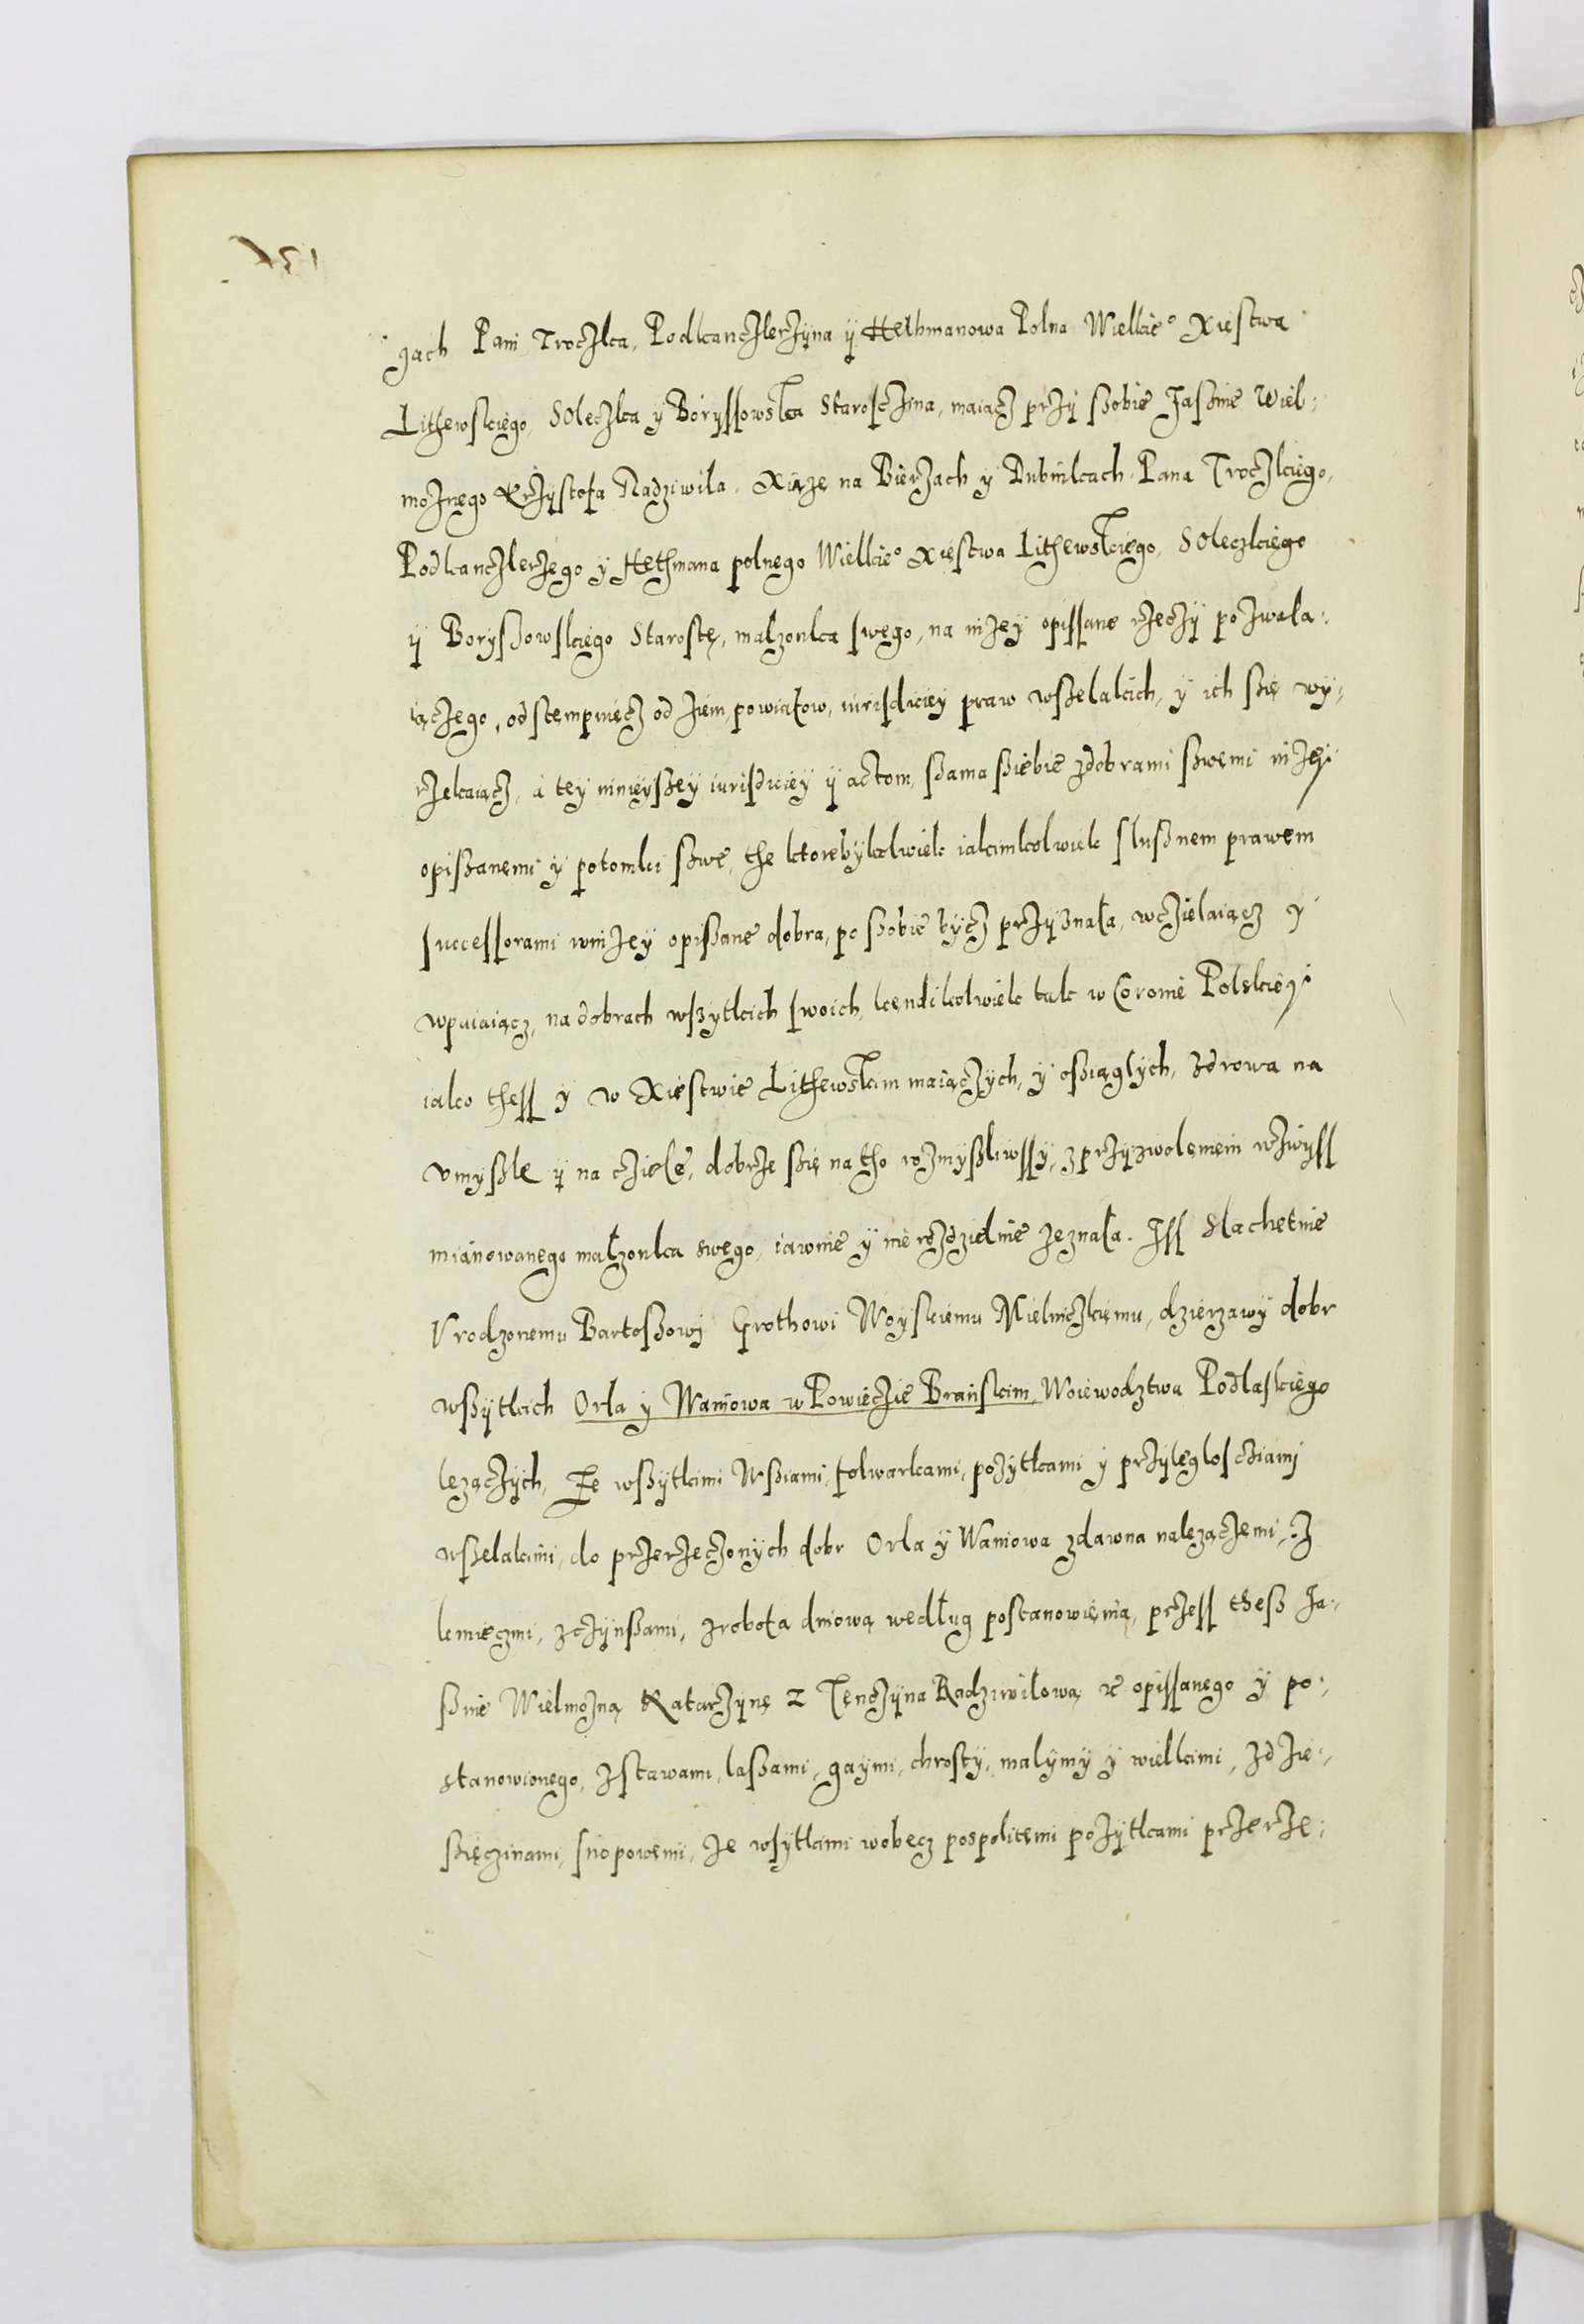 jach Pani Troczka, Podkanczlerzyna ÿ Hethmanowa Polna Wielkie° Xięstwa
Lithewskiego, Soleczka ÿ Boryssowska Starosczina, maiącz przÿ sobie Jasznie Wiel:
moznego Krzÿstofa Radziwila, Xiąże na Bierzach ÿ Dubinkach, Pana Troczkiego,
Podkanczlerzego ÿ Hethmana polnego Wielkie° Xięstwa Lithewskiego, Soleczkiego
ÿ Boryszowskiego Starostę, malzonka swego, na niżeÿ opissane rzeczÿ pozwala:
iączego, odstempuięcz od ziem, powiatow, iurisdiciey praw wszelakich, ÿ ich się wÿ:
rzekaiącz, a tey ninieyszeÿ iurisdiciey ÿ actom, szama szięebie z dobrami szwemi niżeÿ
opiszanemi ÿ potomki szwe, the ktorebykolwiek iakimkolwiek slusznem prawem
successorami wniżeÿ opiszane dobra, po szobie bÿcz przÿznała, wczielaiącz ÿ
wpuiaiącz, na dobrach wszytkich swoich, kendikolwiek tak w Coronie Polskieÿ
iako thess ÿ w Xięstwie Lithewskim maiączÿch, ÿ osziąglÿch, zdrowa na
vmyszle ÿ na cziele, dobrze się na tho rozmyszliwssÿ, z przÿzwolenięm wzwÿss
mianowanego małżonka swego, iawnie ÿ nierozdzielnie zeznała. Iss slachetnie
Vrodzonemu Bartoszowi Grothowi Woyskiemu Mielniczkiemu, dzierzawÿ dobr
wszÿtkich Orla ÿ Waniowa w Powieczie Branskim, Woiewodztwa Podlaskiego
leżączÿch, Ze wszÿtkimi Wsziami, folwarkami, pożytkami ÿ przÿlegloscziami
wszelakimi, do przerzeczonÿch dobr Orla ÿ Waniowa zdawna należączemi, z
kmieczmi, z czÿnszami, z robotą dniową według postanowienia, przess thesz Ja:
sznie Wielmożną Katarzÿnę z Tęnczÿna Radziwilową opissanego ÿ po:
stanowionego, z stawami, laszami, gaymi, chrostÿ, malÿmÿ ÿ wielkimi, z dzie:
szięczinami, snopowemi, ze wsÿtkimi wobecz pospolitemi pożÿtkami przerze: